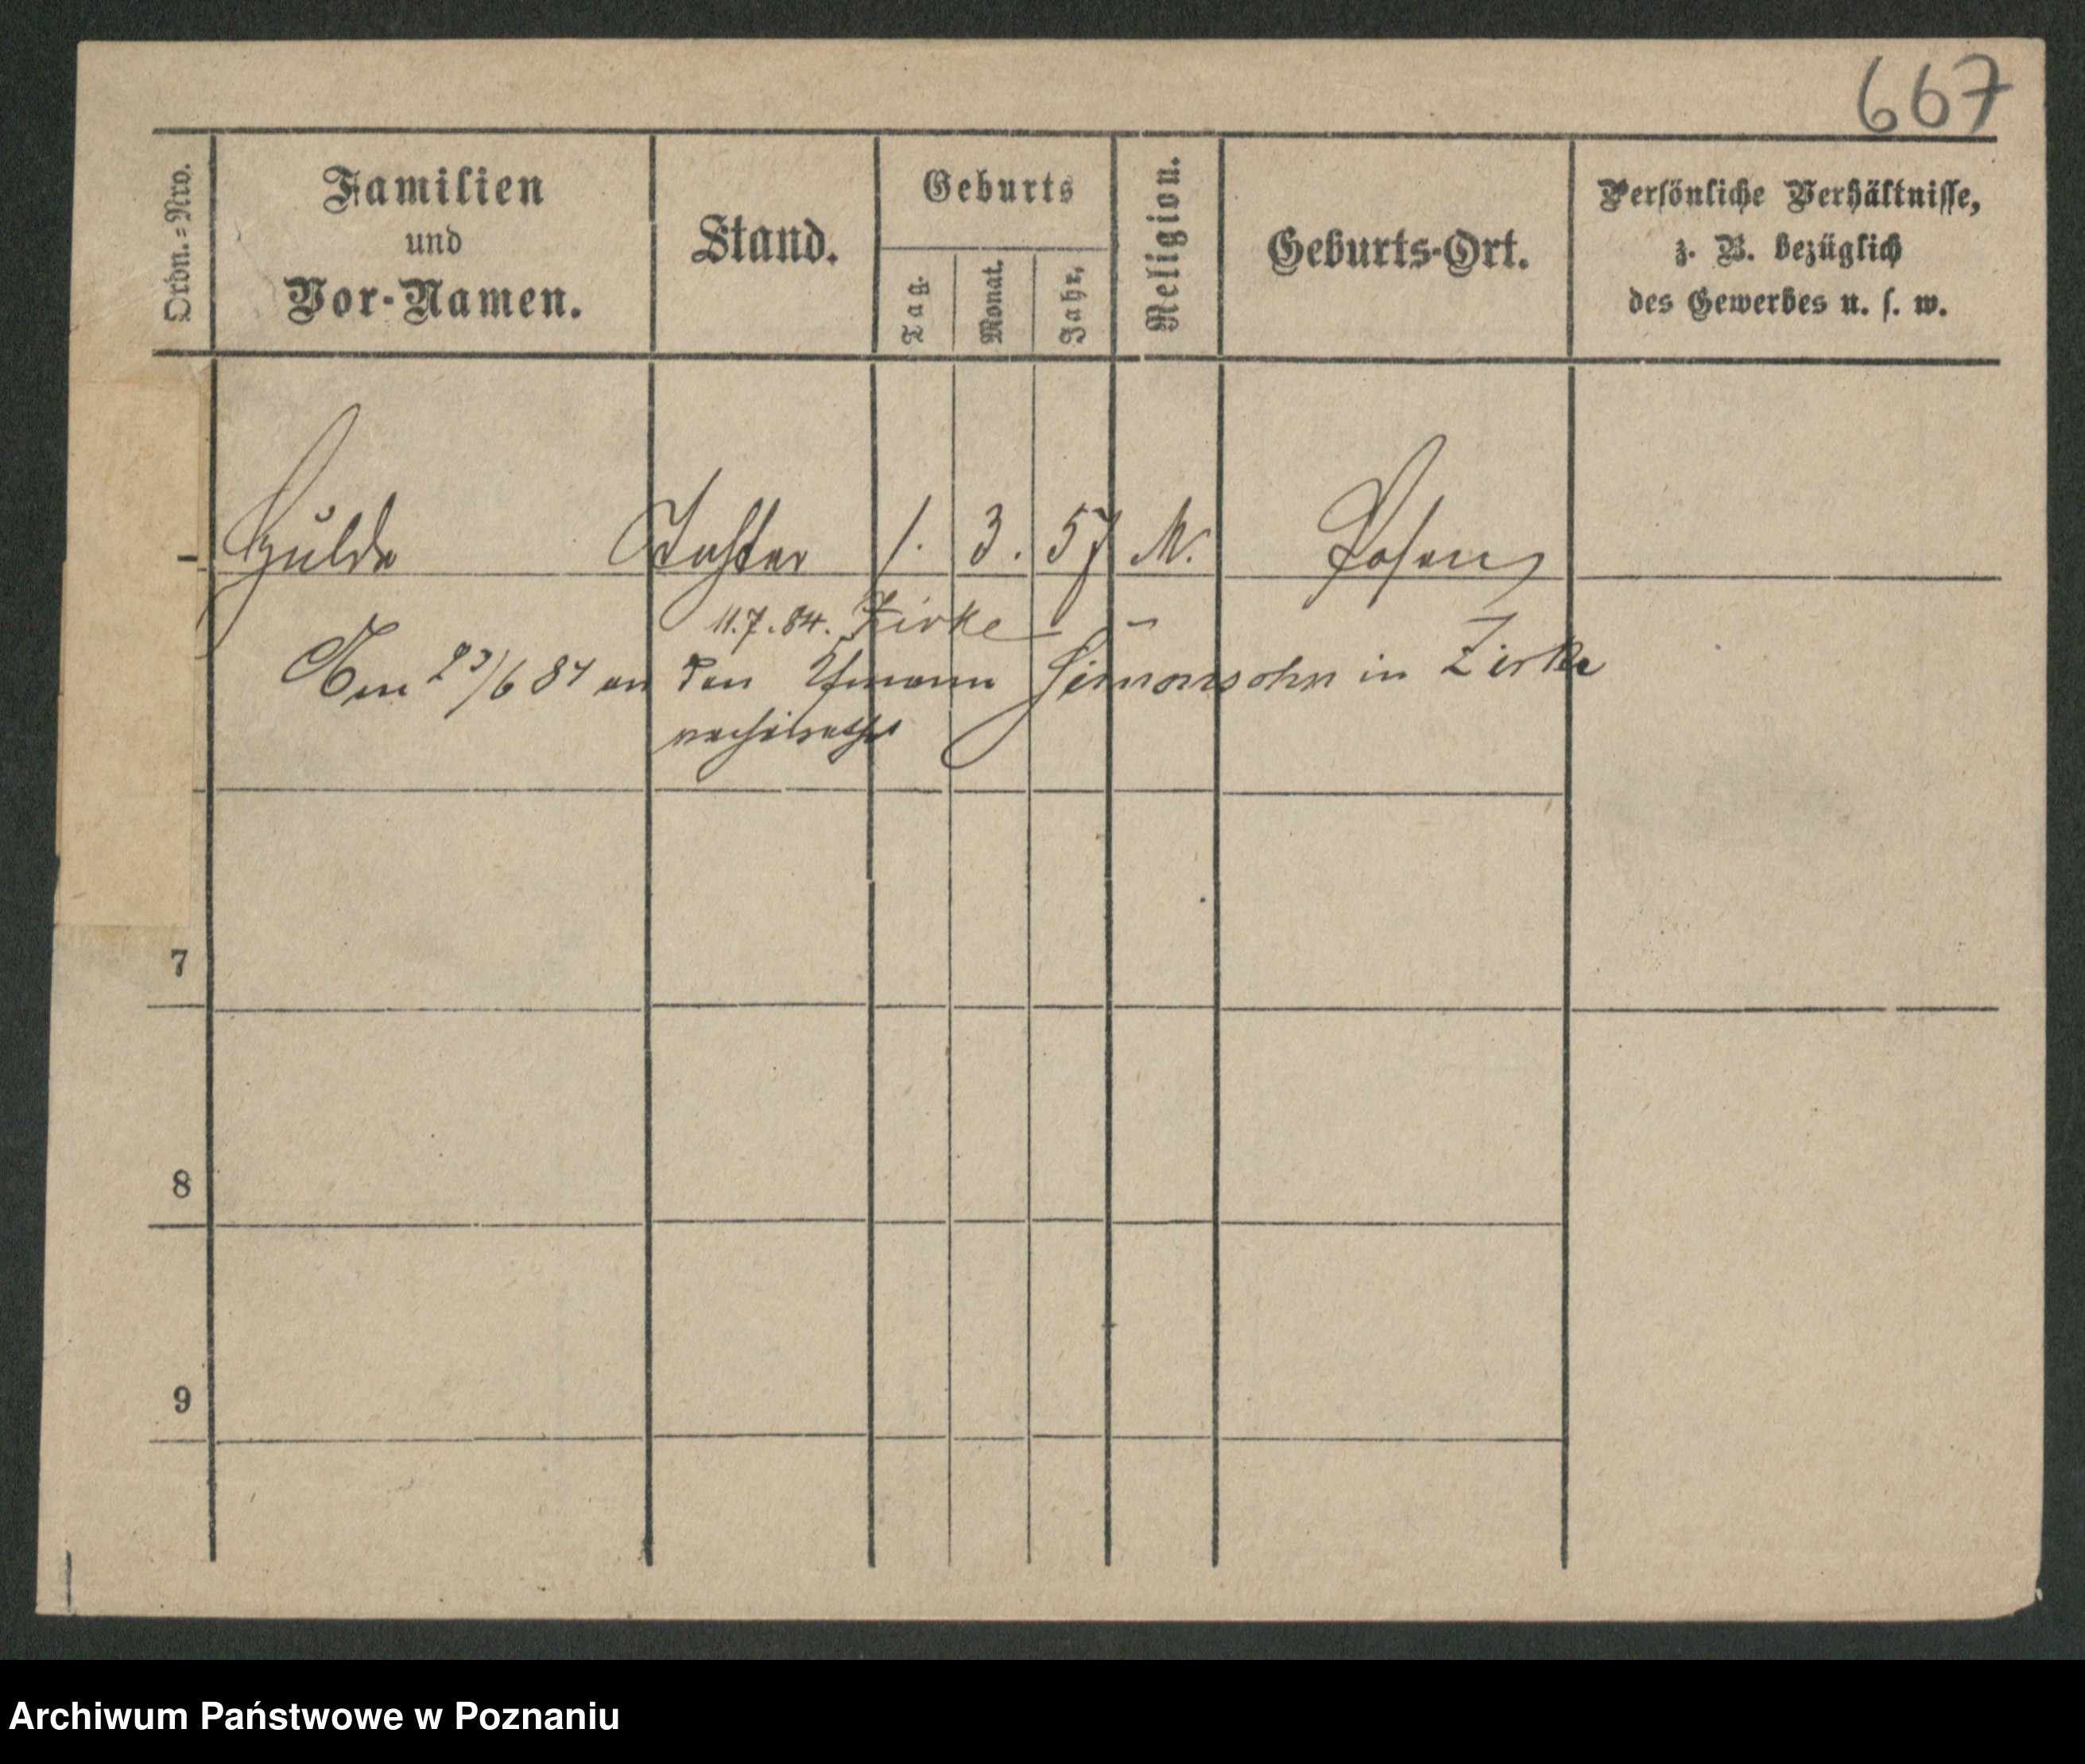 667
Ordn.=Nro.
Familien
und
Vor-Namen.
Stand.
Geburts
Tag.
Monat.
Jahr.
Religion.
Geburts-Ort.
Persönliche Verhältnisse,
z. B. bezüglich
des Gewerbes u. s. w.
Hulda Tochter 1. 3. 57 M. Posen
11.7.84. Zirke
Am 23/6 84 an den Simonsohn in Zirke
verheirathet
7
8
9
Archiwum Państwowe w Poznaniu